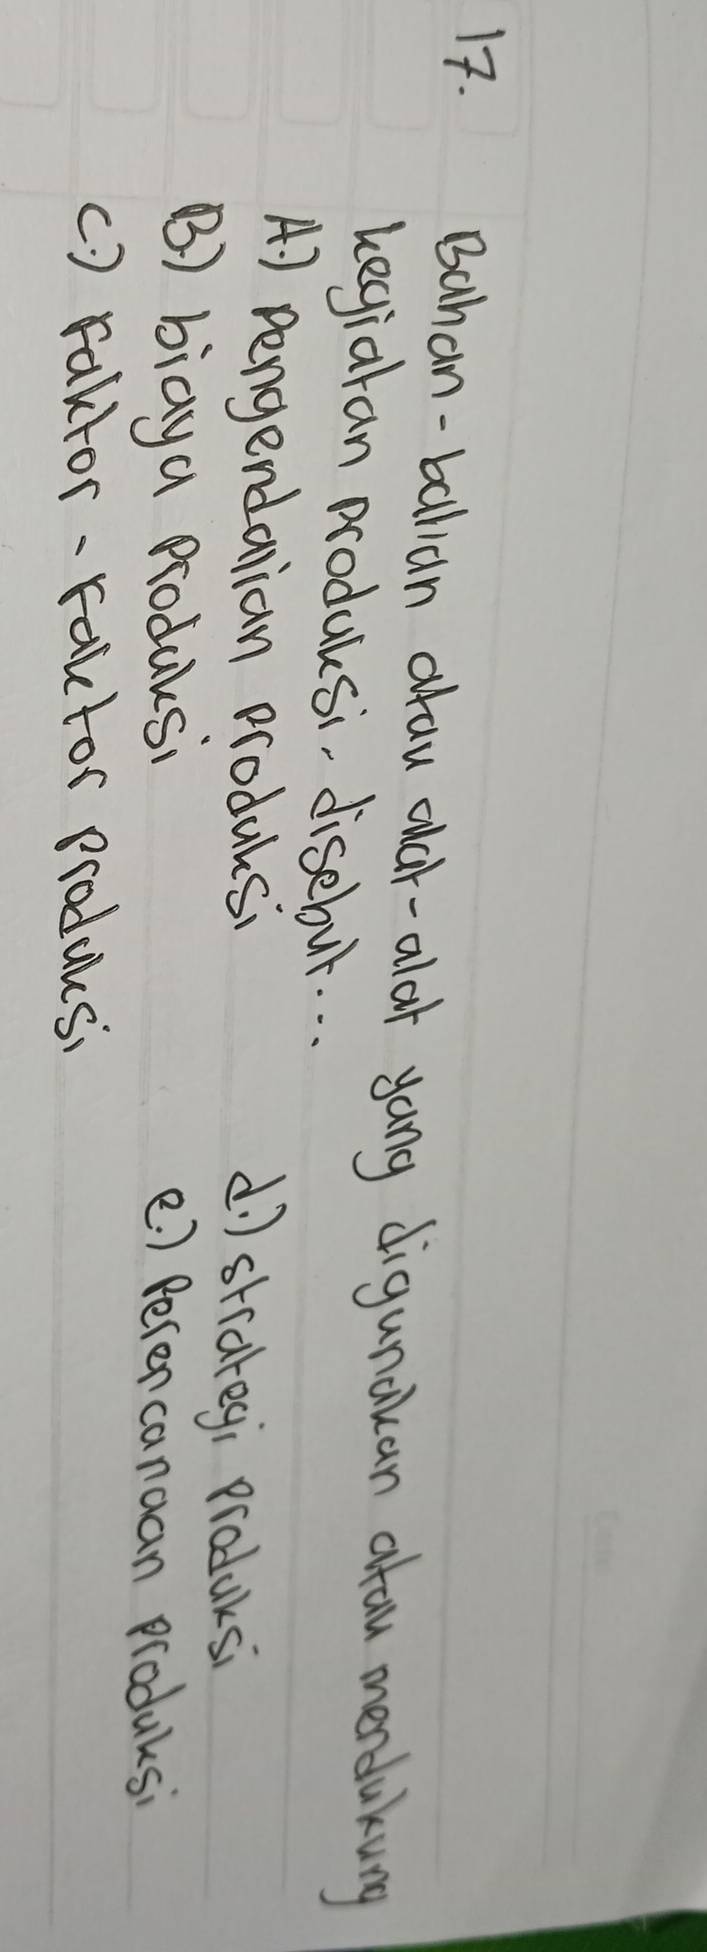 17. Bahan-bahan atau alat-alat yang digunakan atau mendukung
kegiatan produksi, disebut...
A.) Pengendalian produksi
d.) strategi produksi
B.) biaya produksi
e.) Perencanaan produksi
C.) Faktor-Faktor produksi